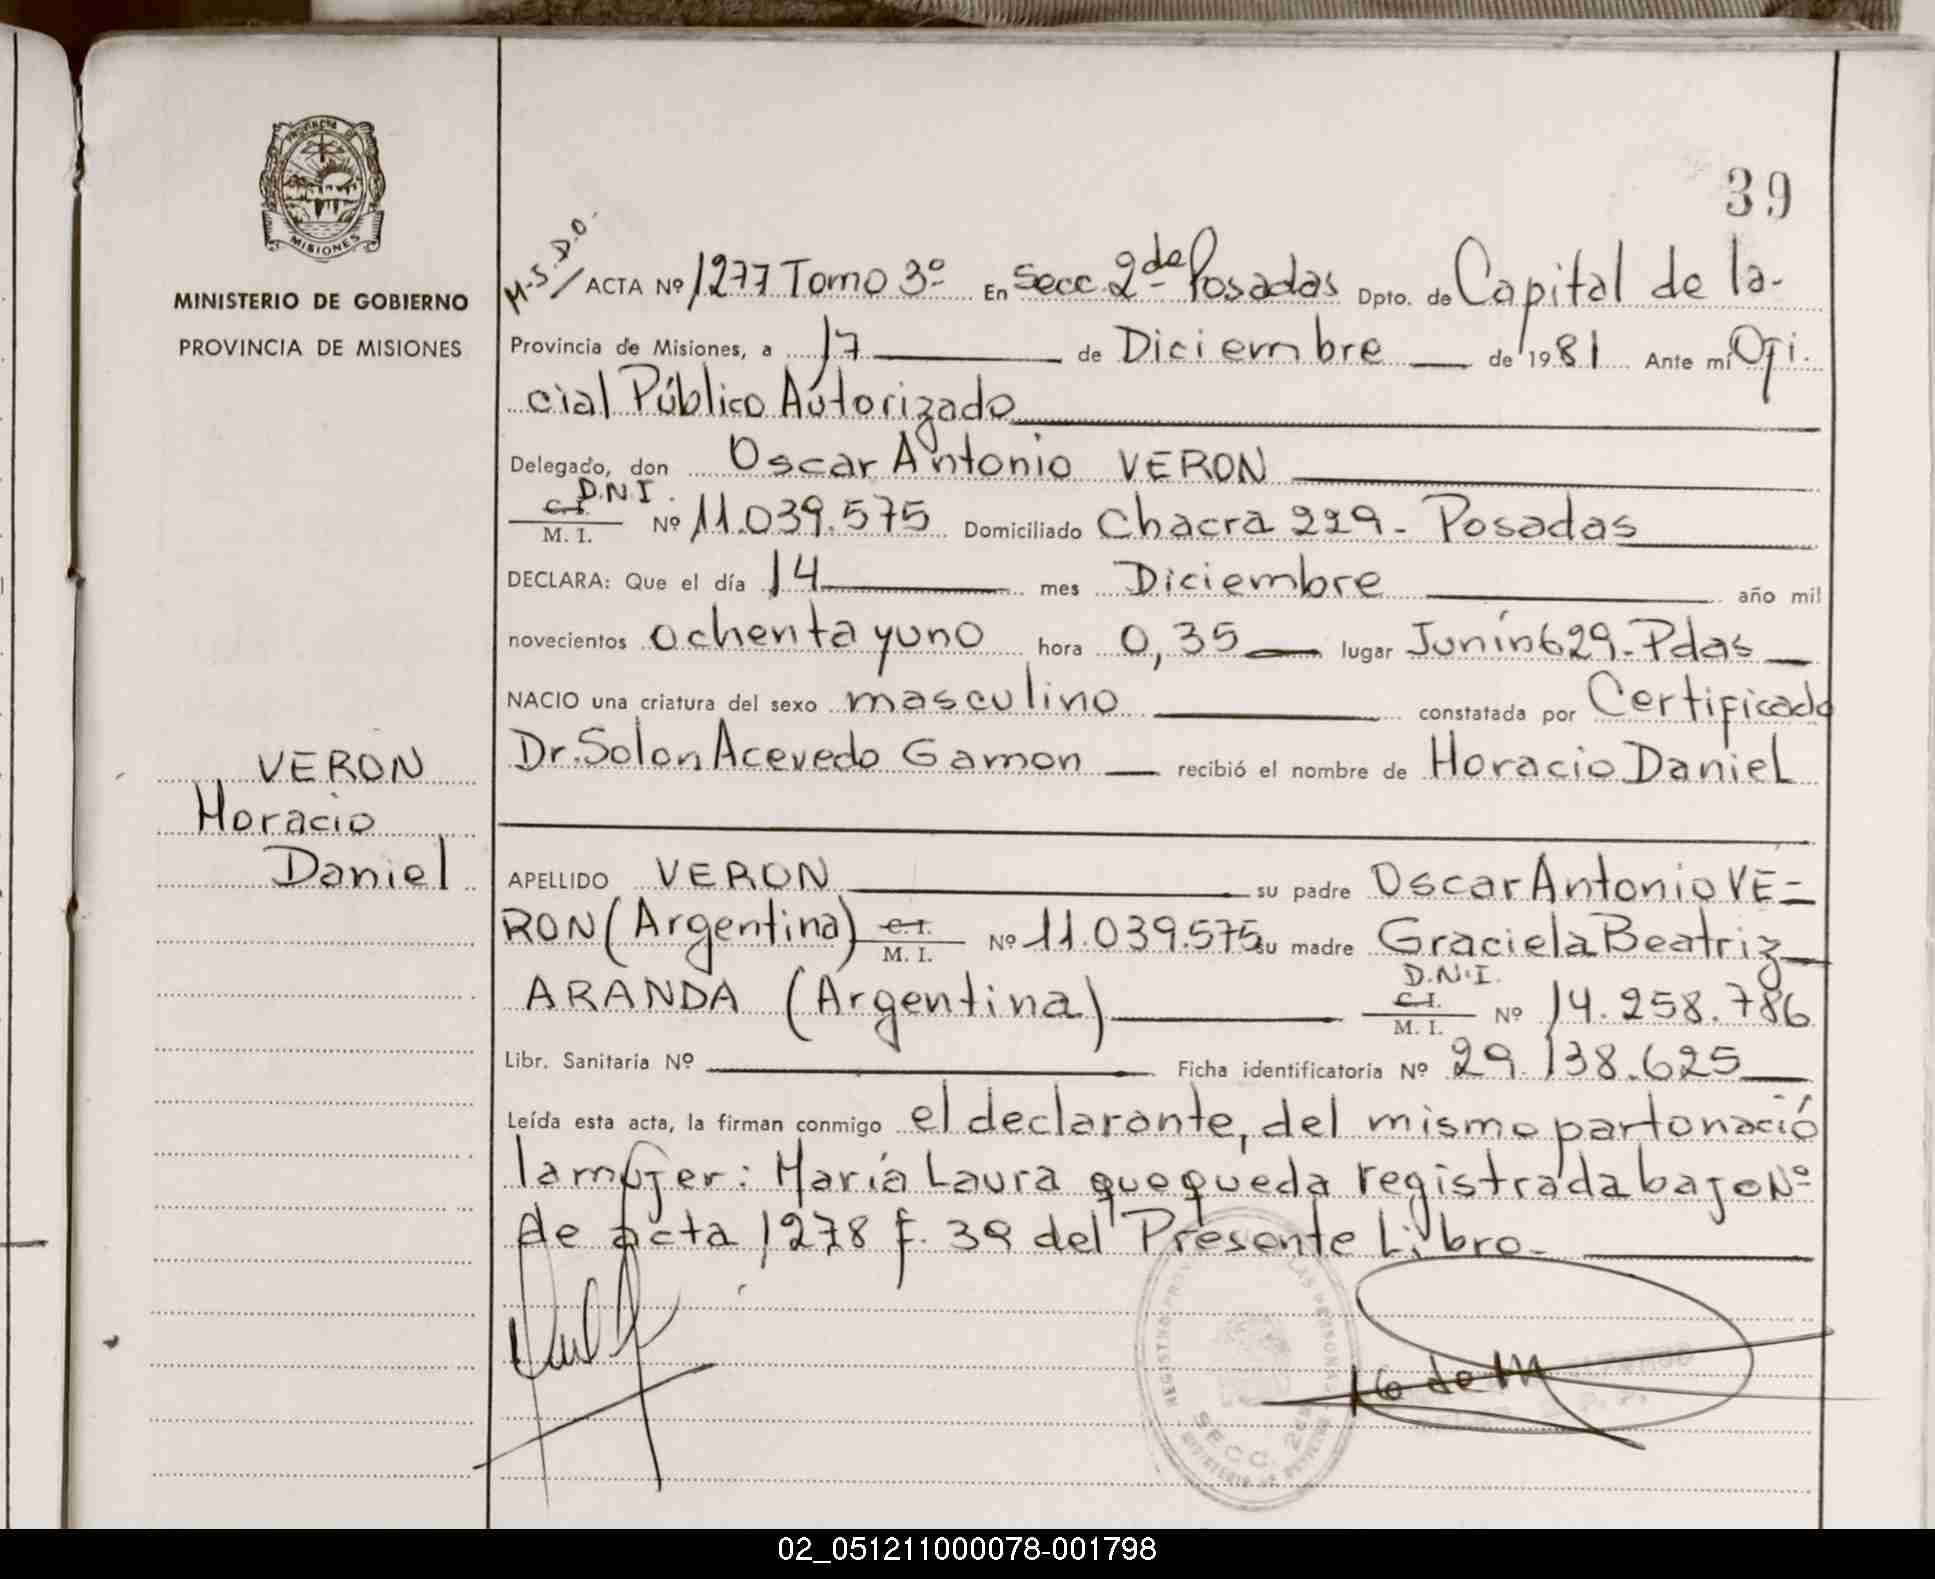 39
M.S.D.O.
MINISTERIO DE GOBIERNO
PROVINCIA DE MISIONES
PROVINCIA DE
MISIONES
ACTA Nº 1277 Tomo 3º En Secc. 2da Posadas Dpto. de Capital de la-
Provincia de Misiones, a 17 de Diciembre de 1981 Ante mí Ofi.
cial Público Autorizado
Delegado, don Oscar Antonio VERON
D.N.I.
C.I.
M. I. Nº 11.039.575 Domiciliado Chacra 229 - Posadas
DECLARA: Que el día 14 mes Diciembre año mil
novecientos ochenta y uno hora 0,35 lugar Junín 629 - Pdas
NACIO una criatura del sexo masculino constatada por Certificado
Dr. Solon Acevedo Gamon recibió el nombre de Horacio Daniel
VERON
Horacio
Daniel
APELLIDO VERON su padre Oscar Antonio VE=
RON (Argentina) C.I. M. I. Nº 11.039.575 su madre Graciela Beatriz
D.N.I.
ARANDA (Argentina) C.I. M. I. Nº 14.258.786
Libr. Sanitaria Nº Ficha identificatoria Nº 29.138.625
Leída esta acta, la firman conmigo el declarante, del mismo parto nació
la mujer: María Laura que queda registrada bajo Nº
de acta 1278 f. 39 del Presente Libro.-
REGISTRO PROV LAS PERSONAS
SECC. 2da
MINISTERIO DE
02_051211000078-001798